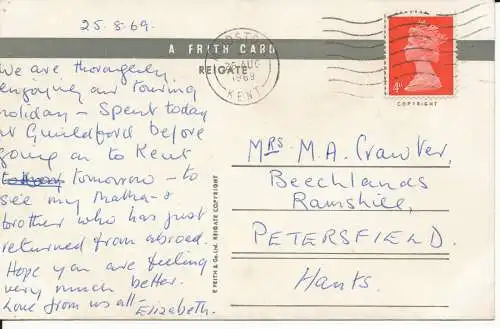 25.8.69.
A FRITH CARD
REIGATE
25 AUG
1969
KENT
4D
COPYRIGHT
We are thoroughly
enjoying our touring
holiday - Spent today
at Guildford before
going on to Kent
tomorrow - to
see my Mother &
brother who has just
returned from abroad.
Hope you are feeling
very much better.
Love from us all - Elizabeth.
© FRITH & Co. Ltd. REIGATE COPYRIGHT
Mrs. M.A. Crawter,
Beechlands
Ramshill,
PETERSFIELD.
Hants.